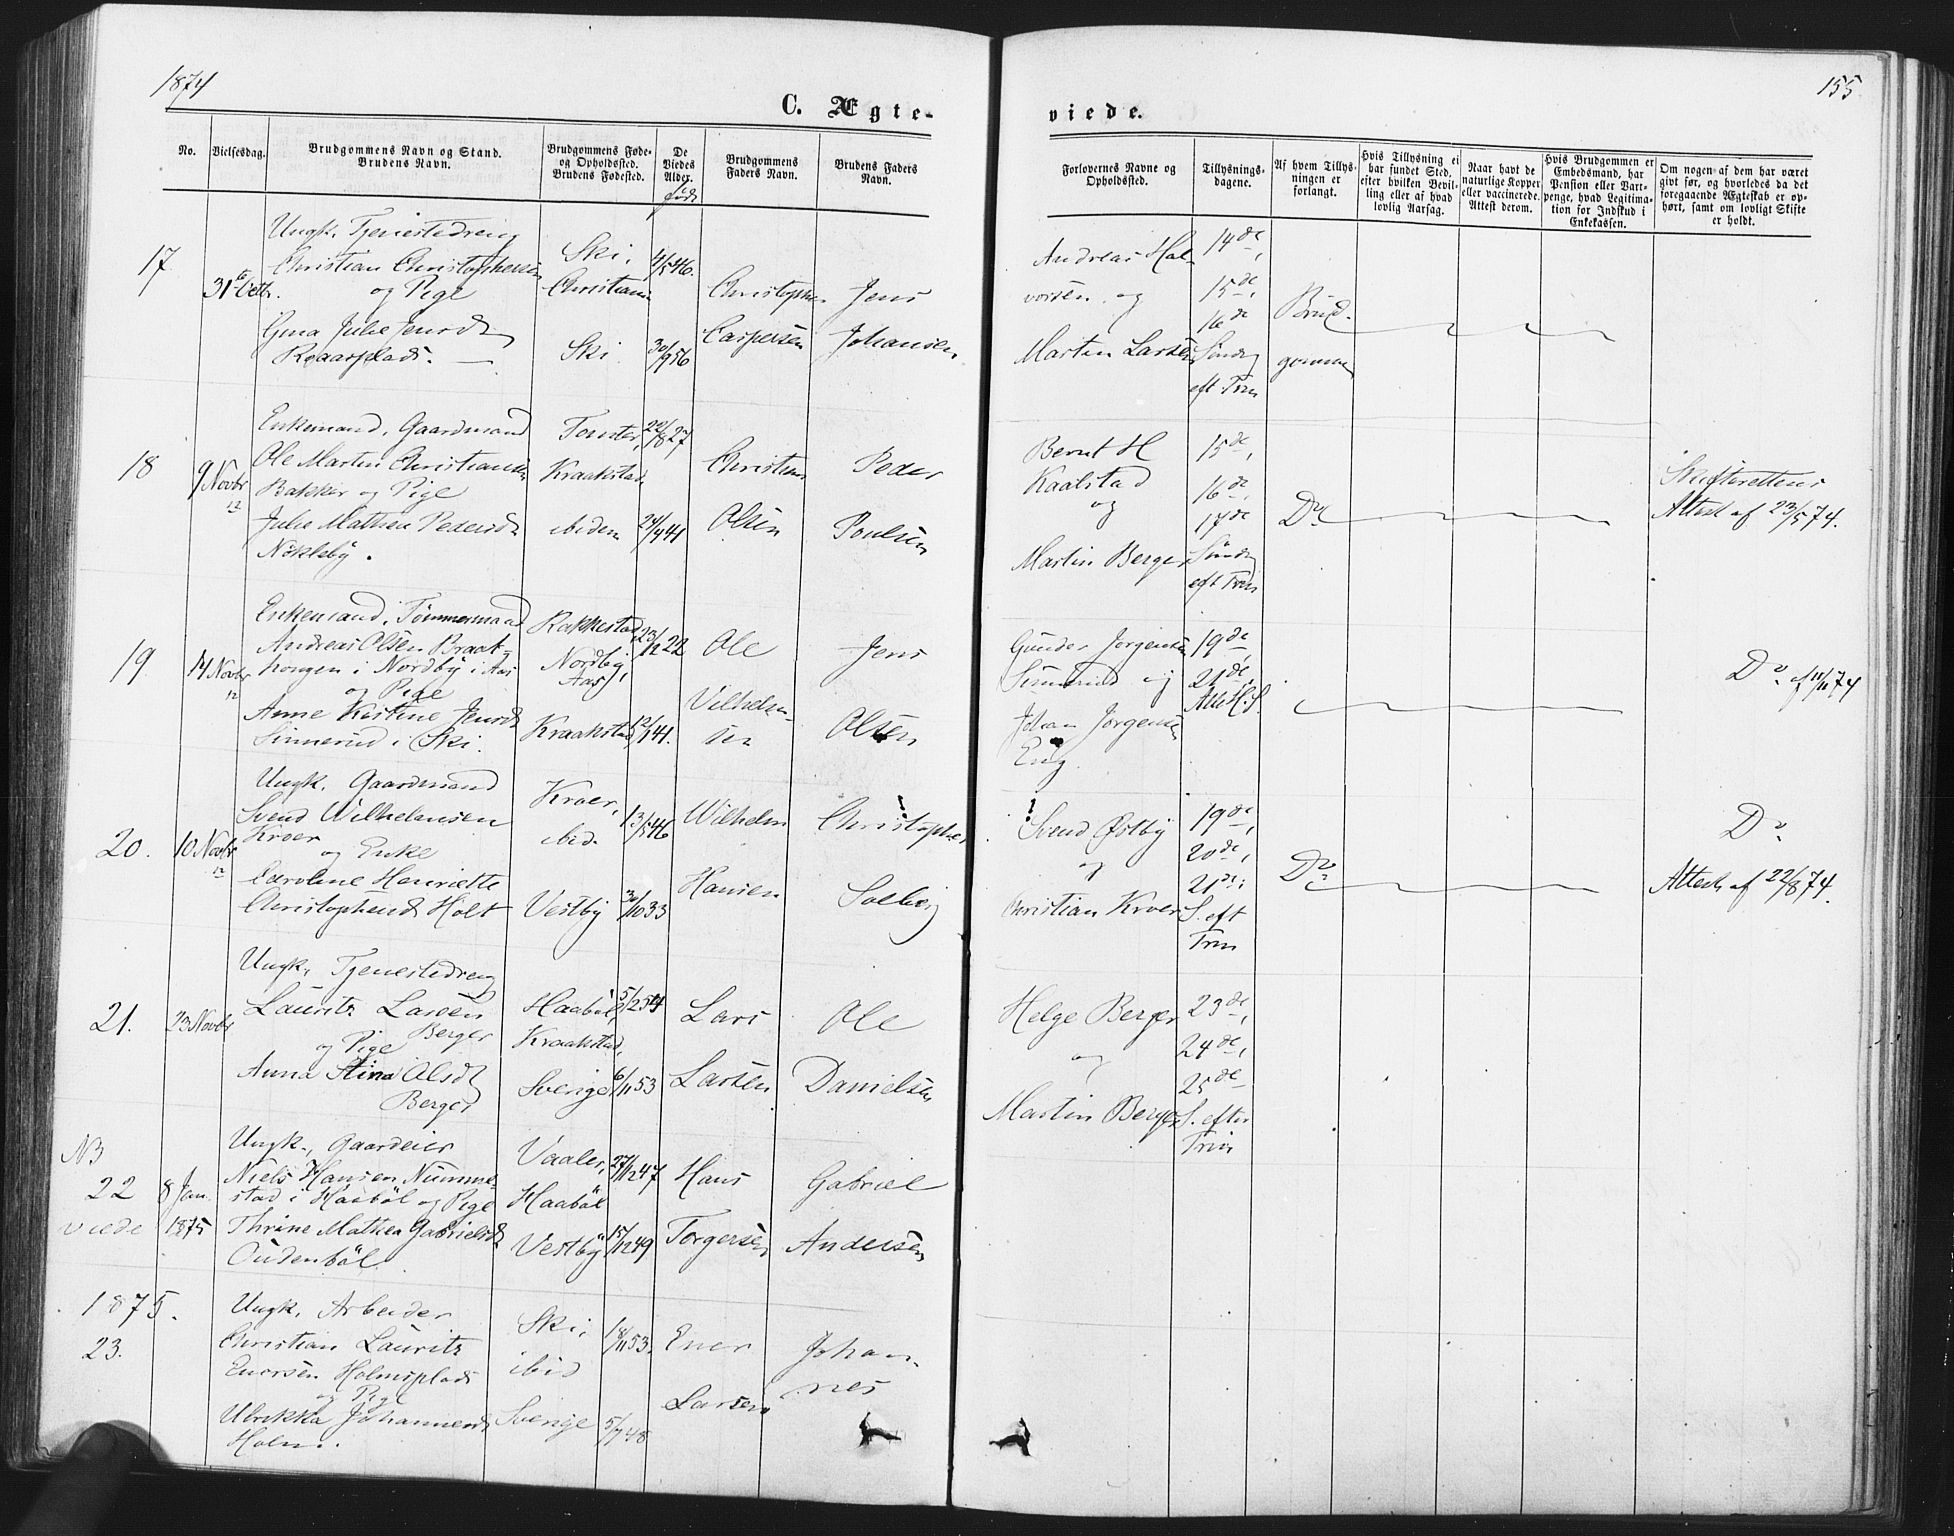 1874
155
C. Ægte-
viede.
No.
Vielsesdag.
Brudgommens Navn og Stand.
Brudens Navn.
Brudgommens Føde-
og Opholdssted.
Brudens Fødested.
De
Viedes
Alder.
Brudgommens
Faders Navn.
Brudens Faders
Navn.
Forlovernes Navne og
Opholdssted.
Tillysnings-
dagene.
Af hvem Tillys-
ningen er
forlangt.
Hvis Tillysning ei
har fundet Sted,
efter hvilken Bevil-
ling eller af hvad
lovlig Aarsag.
Naar havt de
naturlige Kopper
eller vaccinerede.
Attest derom.
Hvis Brudgommen er
Embedsmand, har
Pension eller Vart-
penge, hvad Legitima-
tion for Indskud i
Enkekassen.
Om nogen af dem har været
givt før, og hvorledes da det
foregaaende Ægteskab er op-
hørt, samt om lovligt Skifte
er holdt.
17
Ungk. Tjenestedreng
Christian Christophersen
og Pige
Gina Julie Jensd
Roaasplads.
Ski,
Christiania
Ski
4/5 46.
30/9 56
Christopher
Caspersen
Jens
Johansen
Andreas Hal-
vorsen og
Martin Larsen
14de,
15de,
16de
Sønd
eft Trin
Brud-
gommen
18
9 Novbr
Enkemand, Gaardmand
Ole Martin Christiansen
Bakker og Pige
Julie Mathea Pedersd
Nökleby.
Tomter,
Kraakstad
ibidem
22/8 27
24/9 41
Christian
Olsen
Peder
Poulsen
Bernt H
Kaalstad
og
Martin Berger
15de,
16de
17de
Sönd
eft Trin
Do
Skifterettens
Attest af 23/5 74.
19
14 Novbr
Enkemand, Tømmermand
Andreas Olsen Braat-
hongen i Nordby i Aas
og Pige
Anne Kirstine Jensd
Sinnerud i Ski.
Rakkestad
Nordby,
Aas
Kraakstad
23/12 22
Ole
Vilhelm-
sen
Jens
Olsen
Gunder Jørgensen
Sinnerud og
Johan Jørgensen
Eng.
19de,
21de,
Do af 11/11 74
20.
10 Novbr
Ungk. Gaardmand
Svend Wilhelmsen
Kroer
og Enke
Caroline Henriette
Christophersd Holt
Kroer,
ibid.
Vestby
13/5 46
30/10 33
Wilhelm
Hansen
Christopher
Solberg
Svend Østby
og
Christian Kroer
19de,
20de,
21de;
S. eft
Trin
Do
Do
Attest af 22/8 74.
21.
23 Novbr
Ungk. Tjenestedreng
Lauritz Larsen
Berger
og Pige
Anna Stina Olsd
Berger
Haabøl,
Kraakstad,
Sverige
5/12 54
6/11 53
Lars
Larsen
Ole
Danielsen
Helge Berger
og
Martin Berger
23de,
24de,
25de
S. efter
Trin
NB
22
viede
8 Jan.
1875
Ungk., Gaardeier
Niels Hansen Numme-
stad i Haabøl og Pige
Thrine Mathea Gabrielsd
Oudenbøl.
Vaaler,
Haabøl
Vestby
27/12 47
15/12 49
Hans
Torgersen
Gabriel
Andersen
1875.
23.
Ungk. Arbeider
Christian Lauritz
Enersen Holmsplads
og Pige
Ulrikka Johannesd
Holm.
Ski,
ibid
Sverige
18/11 53.
5/7 48
Ener
Larsen
Johan-
nes